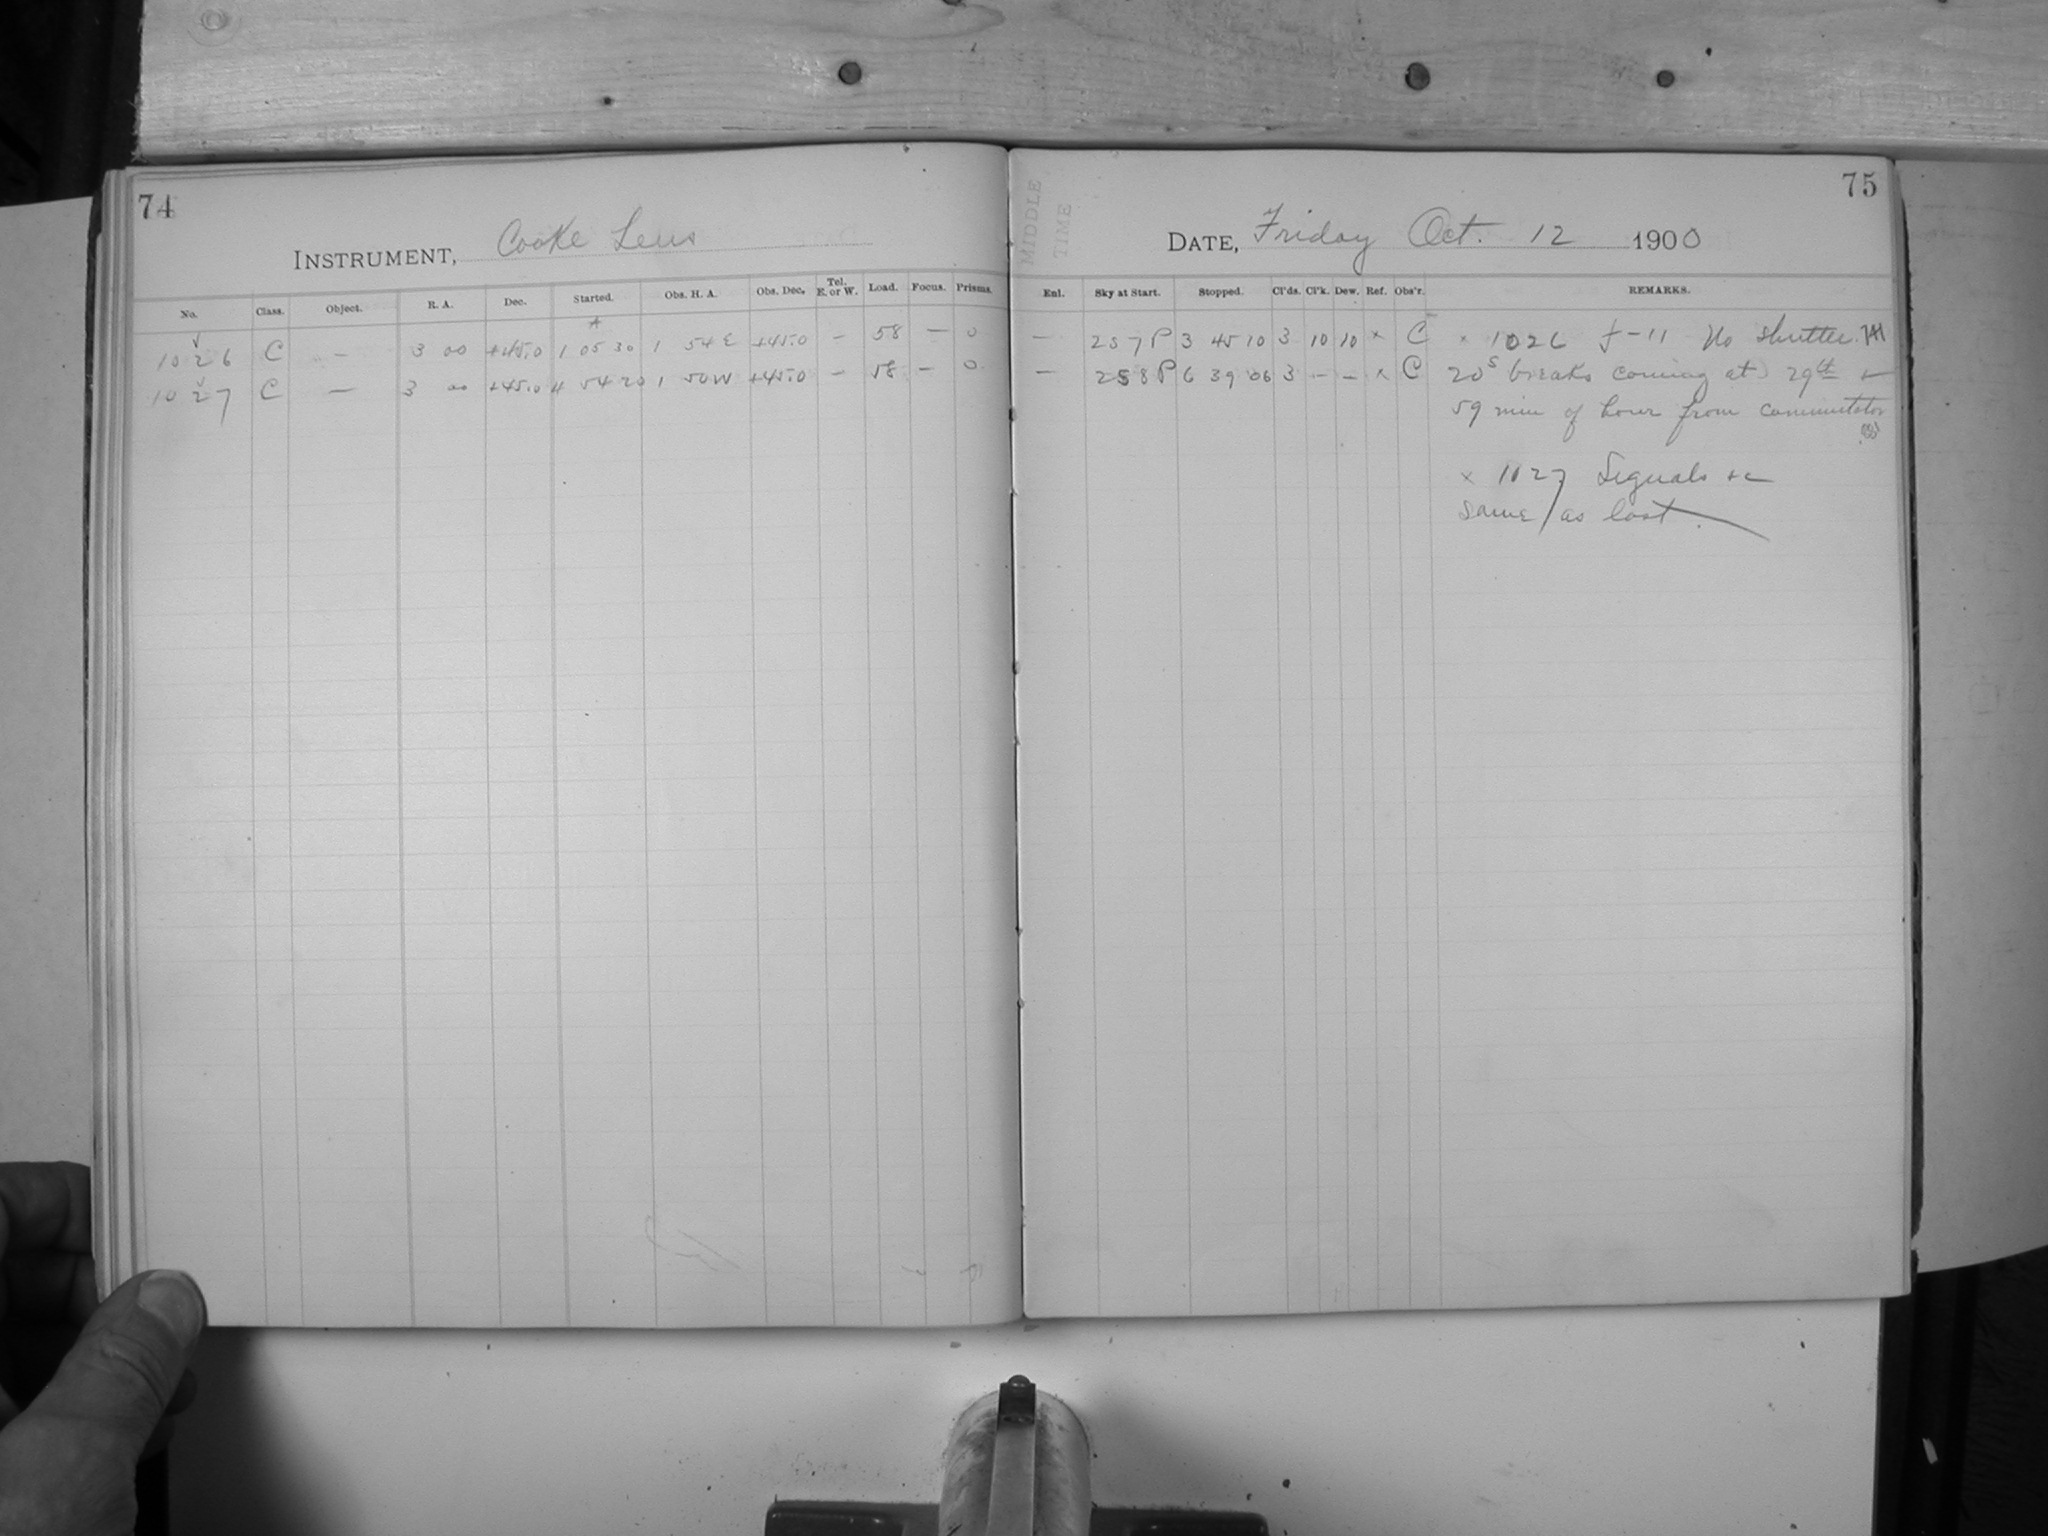 74
INSTRUMENT, Cooke Lens
No. Class. Object. R. A. Dec. Started. Obs. H. A. Obs. Dec. Tel. E. or W. Load. Focus. Prisms.
1026 C — 3 00 +45.0 1 05 30 1 54 E +45.0 — 58 — 0
1027 C — 3 00 +45.0 4 54 20 1 50 W +45.0 — 58 — 0
MIDDLE
TIME
75
DATE, Friday Oct. 12 1900
Enl. Sky at Start. Stopped. Cl'ds. Cl'k. Dew. Ref. Obs'r. REMARKS.
— 257 P 3 45 10 3 10 10 x C x 1026 f-11 No shutter.
— 258 P 6 39 06 3 — — x C 20s breaks coming at 29th +
59 min of hour from commutator
x 1027 Signals +c
same as last.